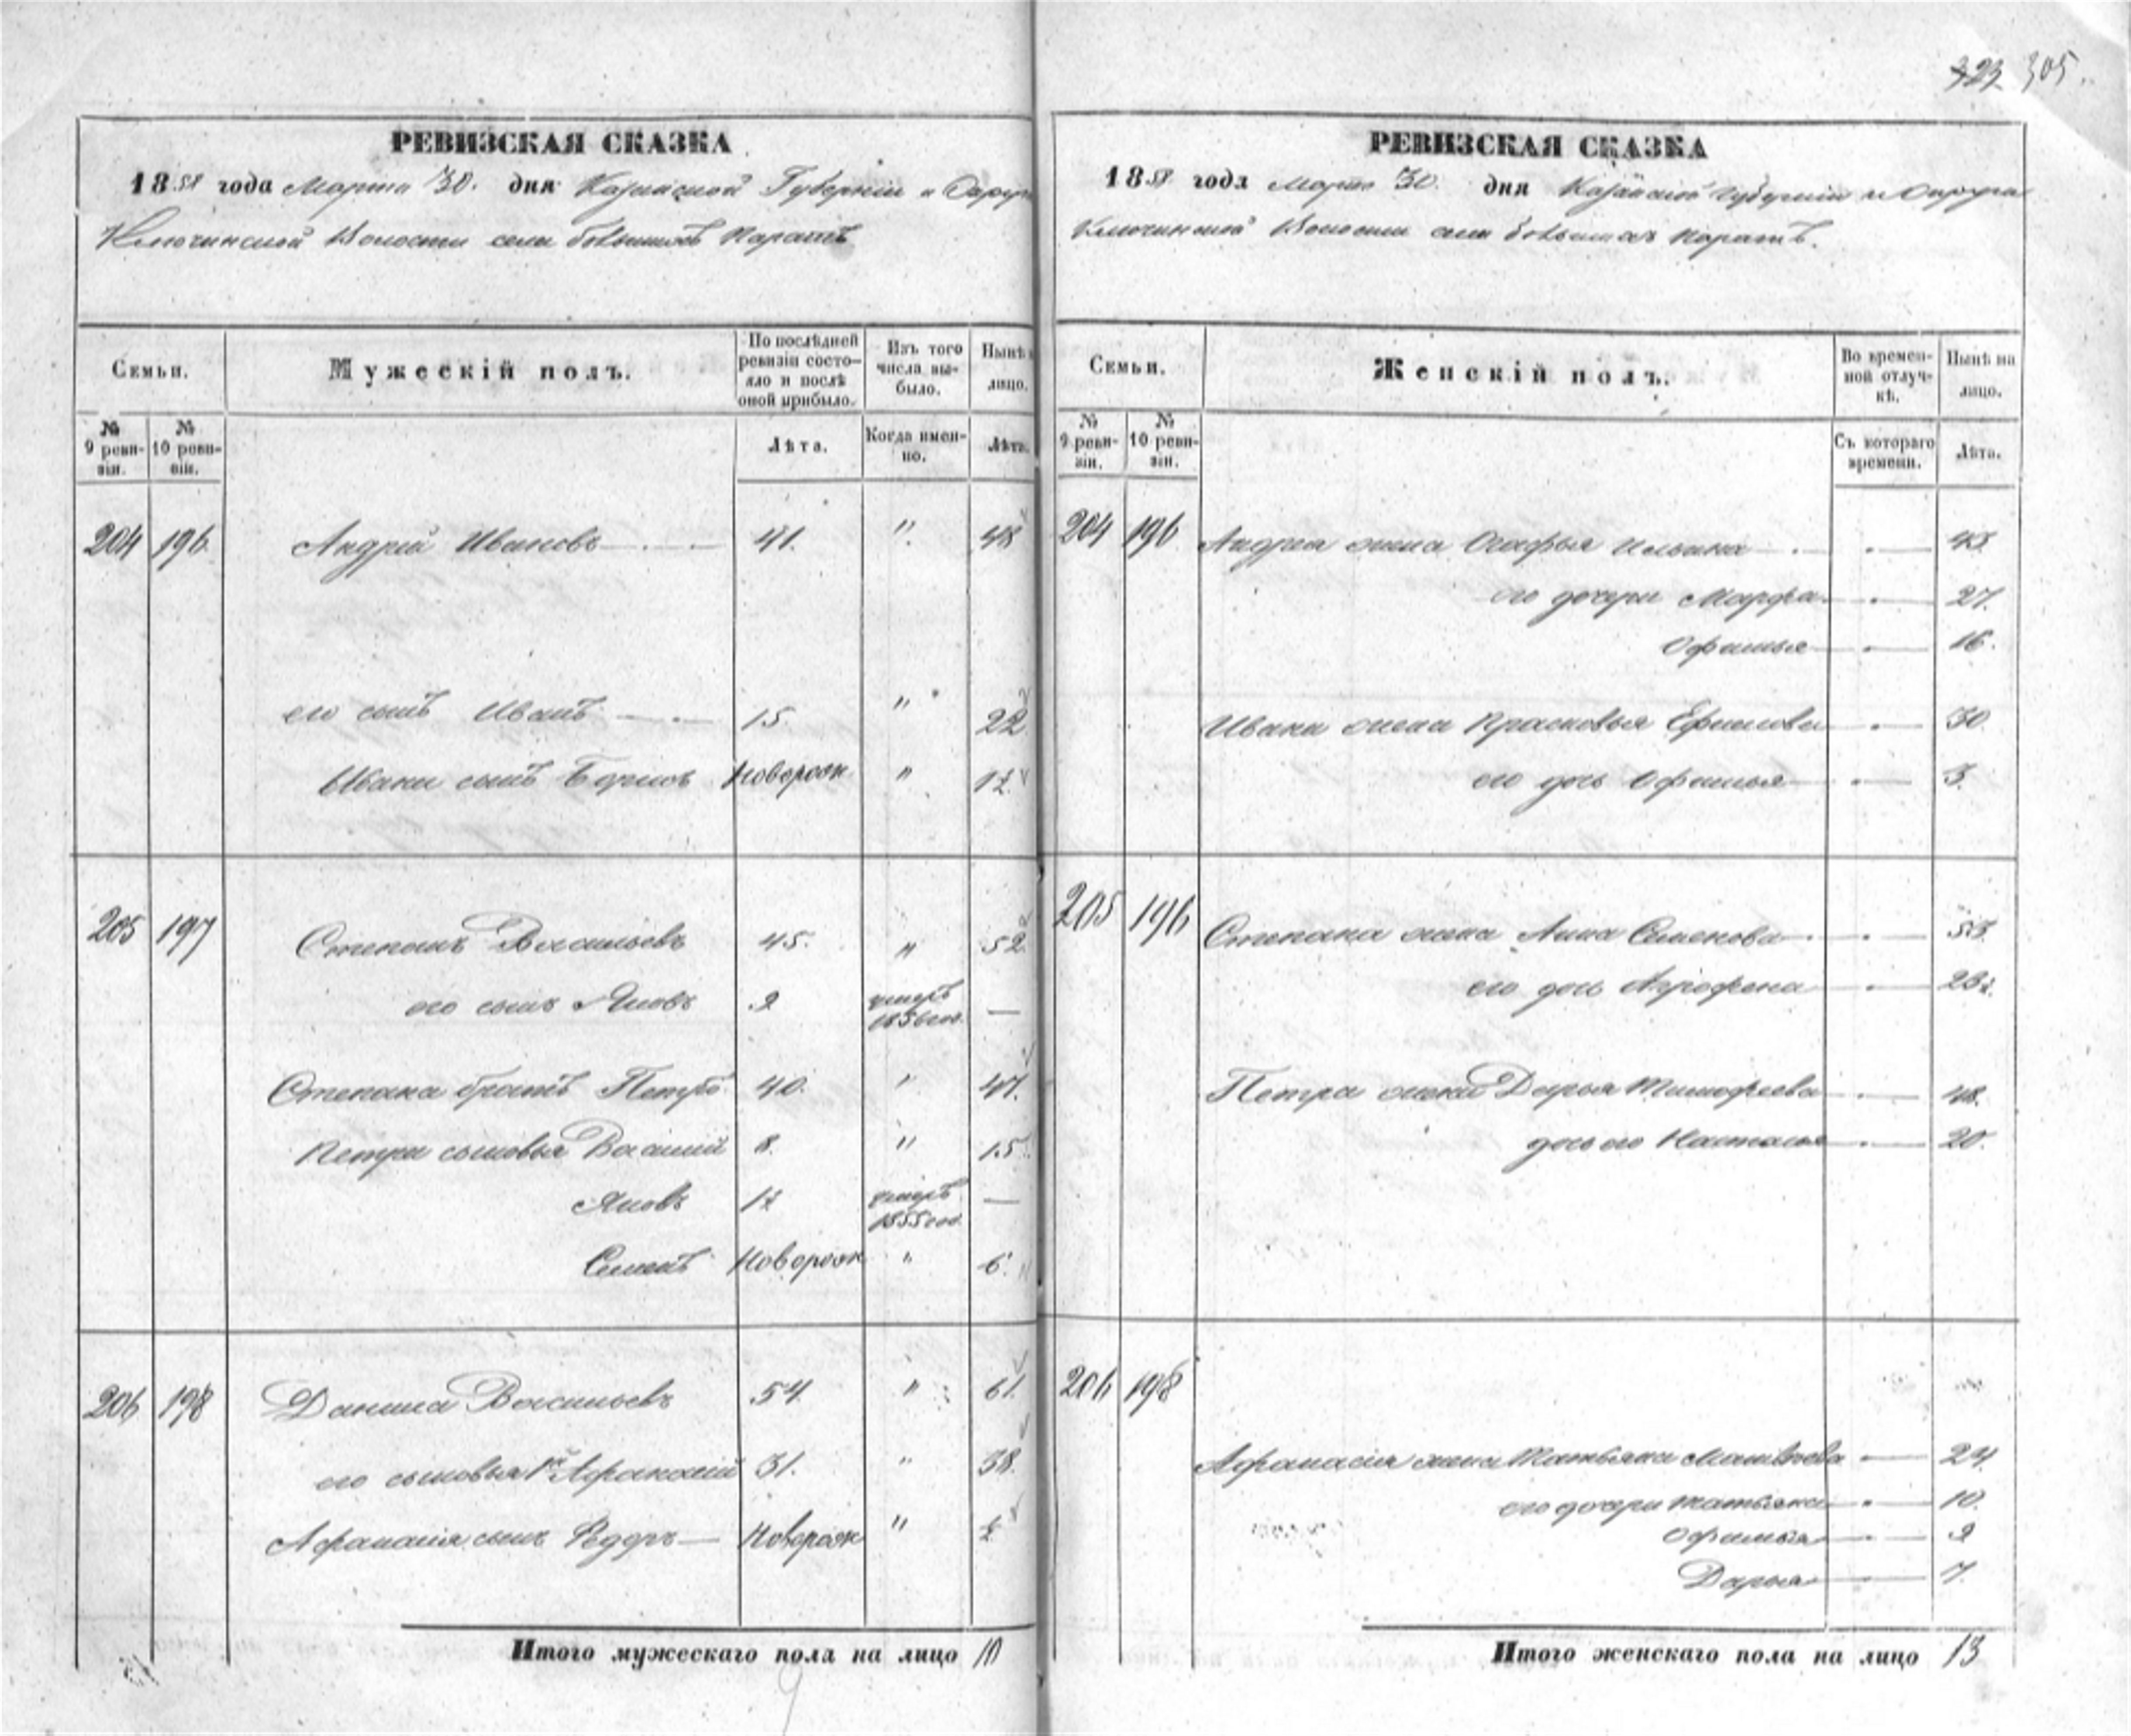 323 305.
РЕВИЗСКАЯ СКАЗКА
1858 года Марта 30. дня Казанской Губерніи и Округи
Ключинской Волости села большихъ Паратъ
Семьи.
Мужескій полъ.
По послѣдней ревизіи состояло и послѣ оной прибыло.
Изъ того числа выбыло.
Нынѣ
лицо.
№ 9 ревизіи.
№ 10 ревизіи.
Лѣта.
Когда именно.
Лѣта.
204 196. Андрей Ивановъ 41. " 48
его сынъ Иванъ 15. " 22
Ивана сынъ Борисъ новорож " 1½
205 197 Степанъ Васильевъ 45. " 52
его сынъ Яковъ 9 умеръ 1856 год. —
Степана братъ Петръ 40. " 47.
Петра сыновья Василий 8. " 15.
Яковъ 1½ умеръ 1855 год. —
Семенъ Новорож " 6.
206 198 Данила Васильевъ 54. " 61.
его сыновья 1й Афанасій 31. " 38.
Афанасия сынъ Федоръ — Новорож " ½
Итого мужескаго пола на лицо 10
9
РЕВИЗСКАЯ СКАЗКА
1858 года Марта 30. дня Казанской Губерніи и Округа
Ключинской Волости села большихъ Паратъ.
Семьи.
Женскій полъ.
Во временной отлучкѣ.
Нынѣ на лицо.
№ 9 ревизіи.
№ 10 ревизіи.
Съ котораго времени.
Лѣта.
204 196 Андрея жена Огафья Ильина — 45.
его дочери Марфа — 27.
Офимья — 16.
Ивана жена Прасковья Ефимова — 30.
его дочь Офимья — 3.
205 196 Степана жена Анна Семенова — 53.
его дочь Аграфена — 23½.
Петра жена Дарья Тимофеева — 48.
дочь его Наталья — 20.
206 198
Афанасія жена Татьяна Матвѣева — 24.
его дочери Татьяна — 10.
Офимья — 9
Дарья — 7.
Итого женскаго пола на лицо 13